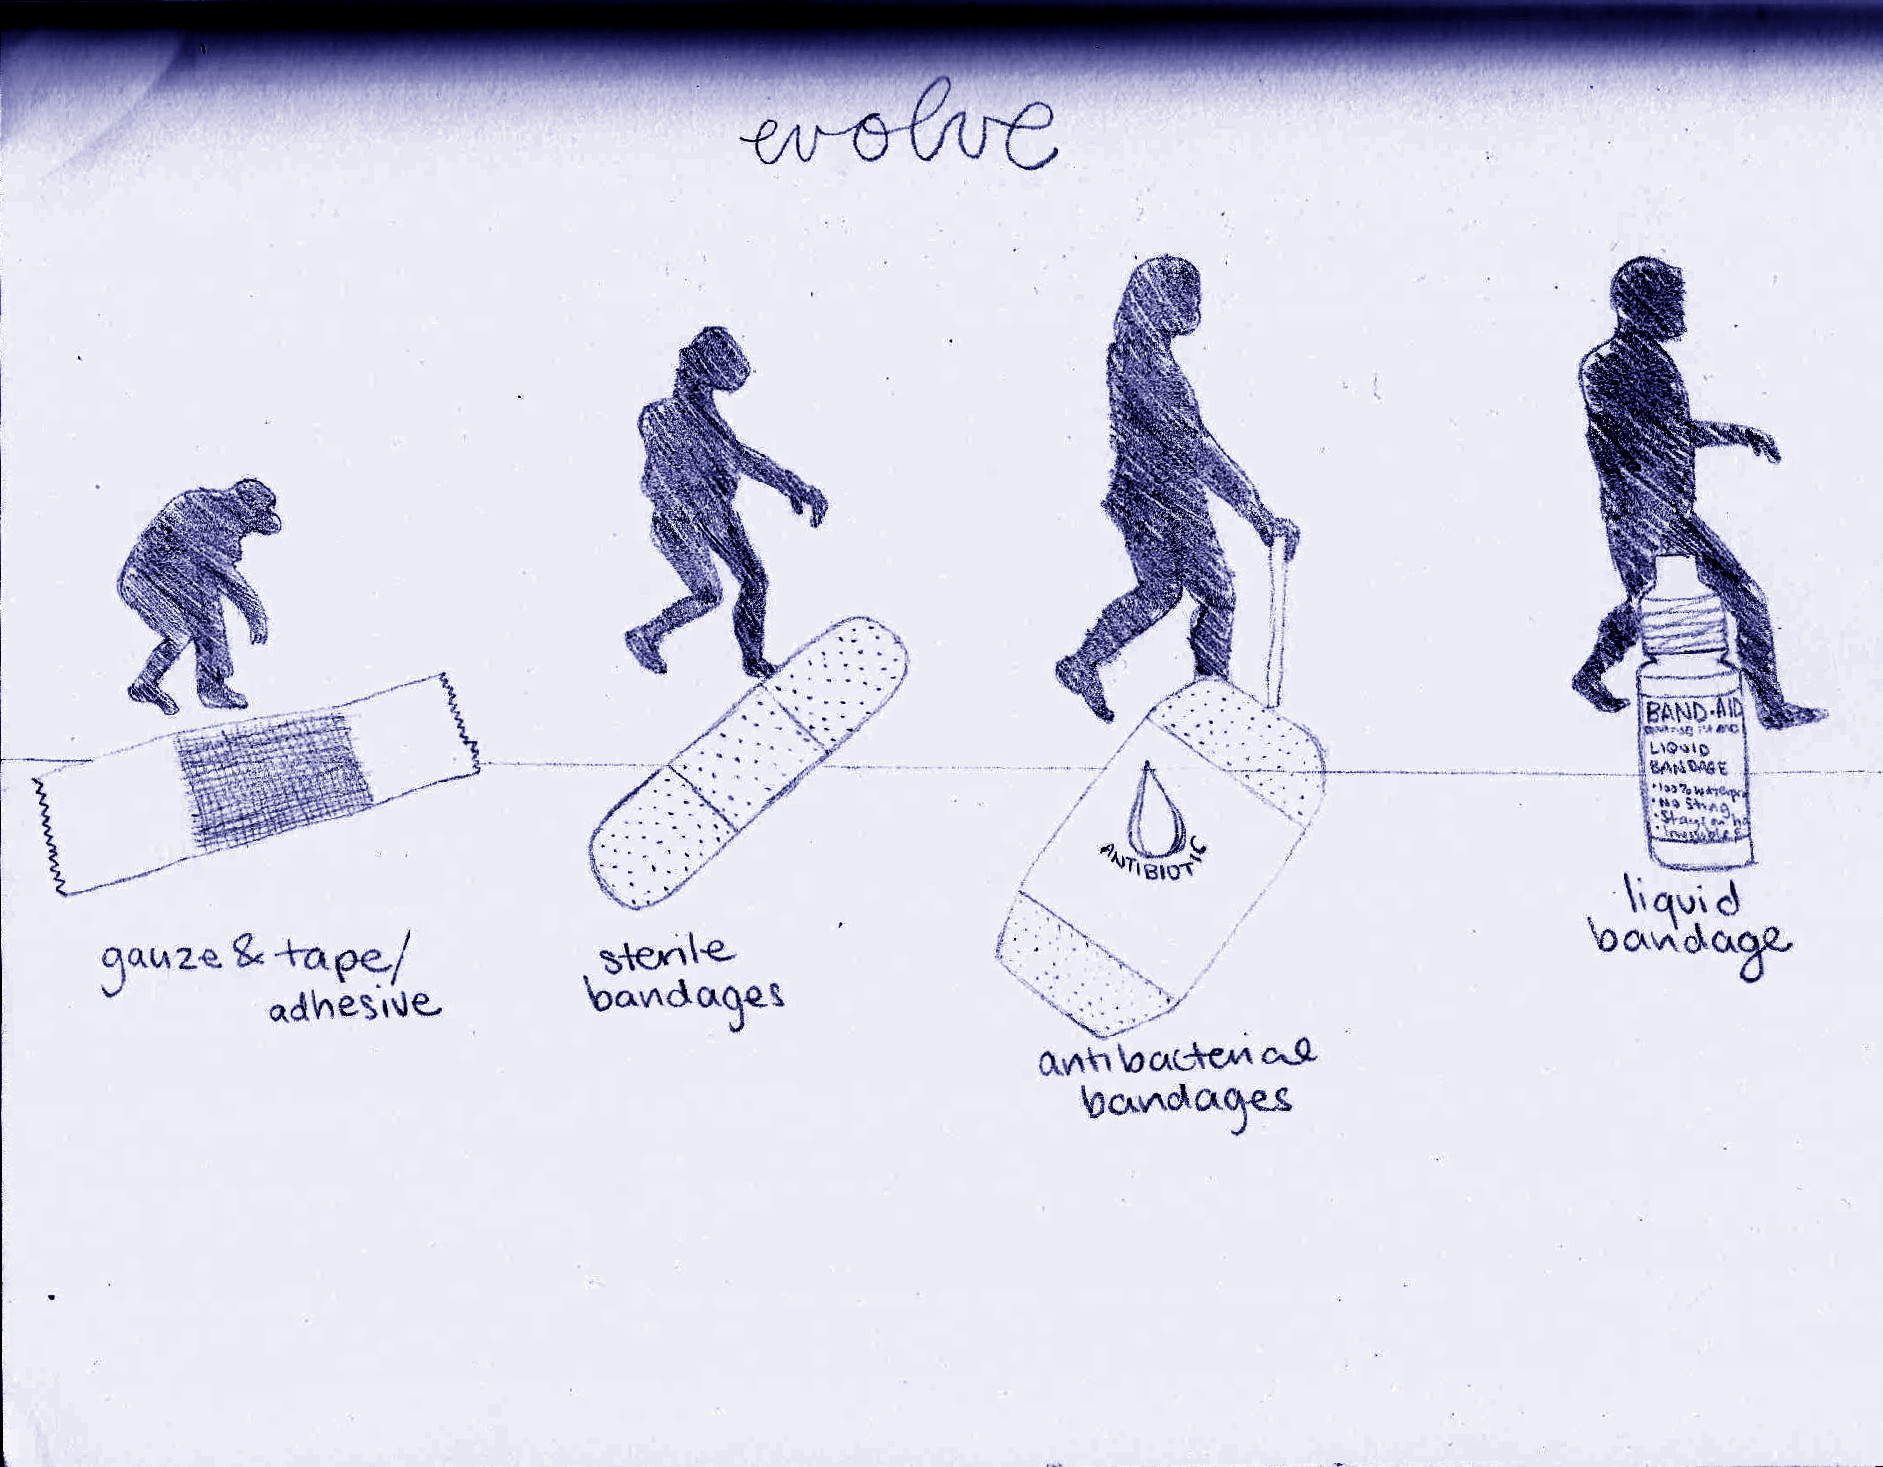 evolve
gauze & tape/
adhesive
sterile
bandages
ANTIBIOTIC
antibacterial
bandages
BAND-AID
LIQUID
BANDAGE
• 100% waterpr
• No Sting
• Stays on
• Invisible
liquid
bandage